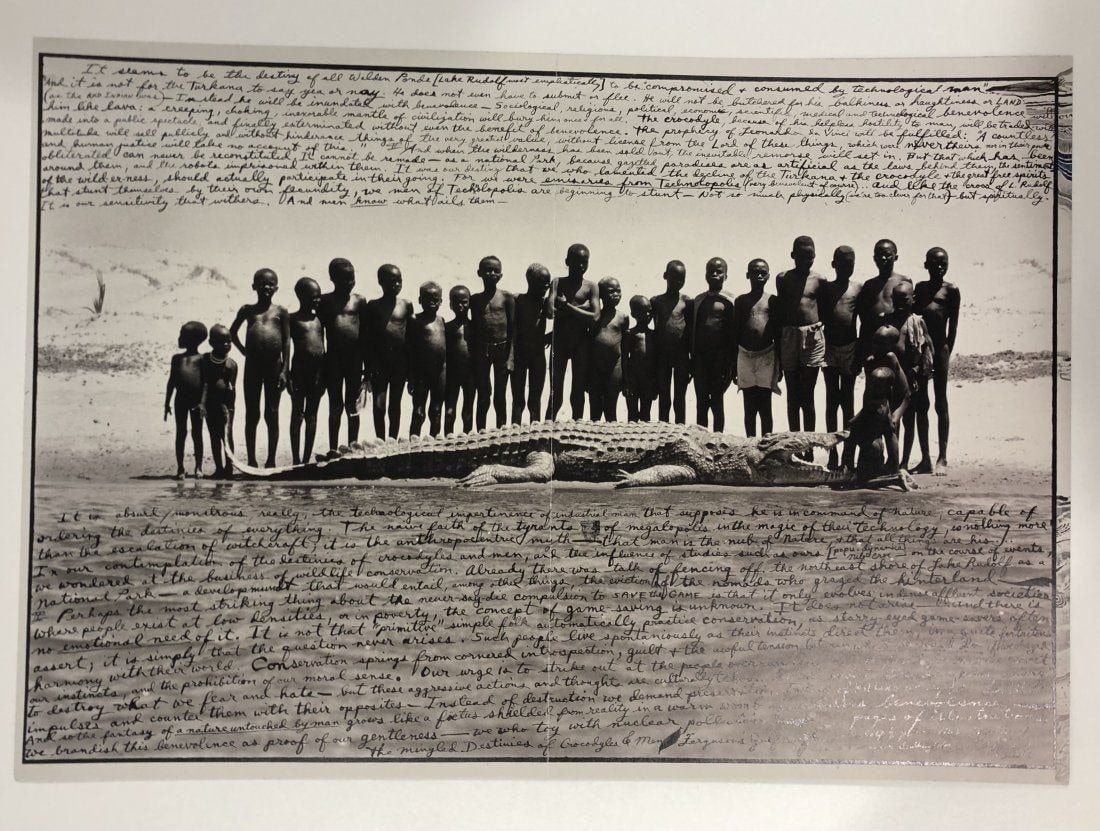 It seems to be the destiny of all Walden Ponds [Lake Rudolf most emphatically] to be "compromised & consumed by technological man"
And it is not for the Turkana to say yea or nay. He does not even have to submit or flee. He will not be butchered for his balkiness or haughtiness or LAND
(as the RED INDIAN was) — Instead he will be inundated with benevolence — Sociological, religious, political, economic, scientific, medical and technological benevolence
him like lava: a creeping, choking inexorable mantle of civilization will bury him once for all. The crocodyle, because of his helpless hostility to men, will be traded
made into a public spectacle and finally exterminated without even the benefit of benevolence. The prophecy of Leonardo da Vinci will be fulfilled: "A countless
multitude will sell publicly and without hindrance things of the very greatest value, without license from the Lord of these things, which were never theirs nor in their power
and human justice will take no account of this." And when the wilderness has been sold the inevitable remorse will set in. But that which has been
obliterated can never be reconstituted, it cannot be remade — as a national Park, because gazetted paradises are as artificial as the laws behind them, the sentries
around them, and the robots imprisoned within them. It was our destiny that we who lamented the decline of the Turkana & the crocodyle & the great free spirits
of the wilderness should actually participate in their going. For we were emissaries from Technolopolis (very benevolent of course).. and like the crocs of L. Rudolf
that stunt themselves by their own fecundity, we men of Technolopolis are beginning to stunt — Not so much physically (we're too clever for that) but spiritually.
It is our sensitivity that withers. And men know what ails them —
It is absurd, monstrous really, the technological impertinence of industrial man that supposes he is in command of nature, capable of
ordering the destinies of everything. The naive faith of the tyrants of megalopolis in the magic of their technology is nothing more
than the escalation of witchcraft; it is the anthropocentric myth — that man is the nub of Nature & that all things are his...
In our contemplation of the destinies of crocodyles and men, and the influence of studies such as ours on the course of events,
we wondered at the business of wildlife conservation. Already there was talk of fencing off the northeast shore of Lake Rudolf as a
national Park — a development that would entail, among other things, the eviction of the nomads who grazed the hinterland —
Perhaps the most striking thing about the never-say-die compulsion to SAVE the GAME is that it only evolves in dense affluent societies
where people exist at low densities, or in poverty, the concept of game-saving is unknown. It does not arise — and there is
no emotional need of it. It is not that "primitive" simple folk automatically practice conservation, as starry eyed game-savers often
assert; it is simply that the question never arises. Such people live spontaneously as their instincts direct them in a quite fortuitous
harmony with their world. Conservation springs from cornered introspection, guilt & the awful tension between
our instincts, and the prohibition of our moral sense. Our urge is to strike out at the people
to destroy what we fear and hate — but these aggressive actions and thought are culturally
impulses and counter them with their opposites — Instead of destruction we demand preservation
And so the fantasy of a nature untouched by man grows like a foetus shielded from reality in a warm womb
we brandish this benevolence as proof of our gentleness — we who toy with nuclear pollution
The mingled Destinies of Crocodyles & Men